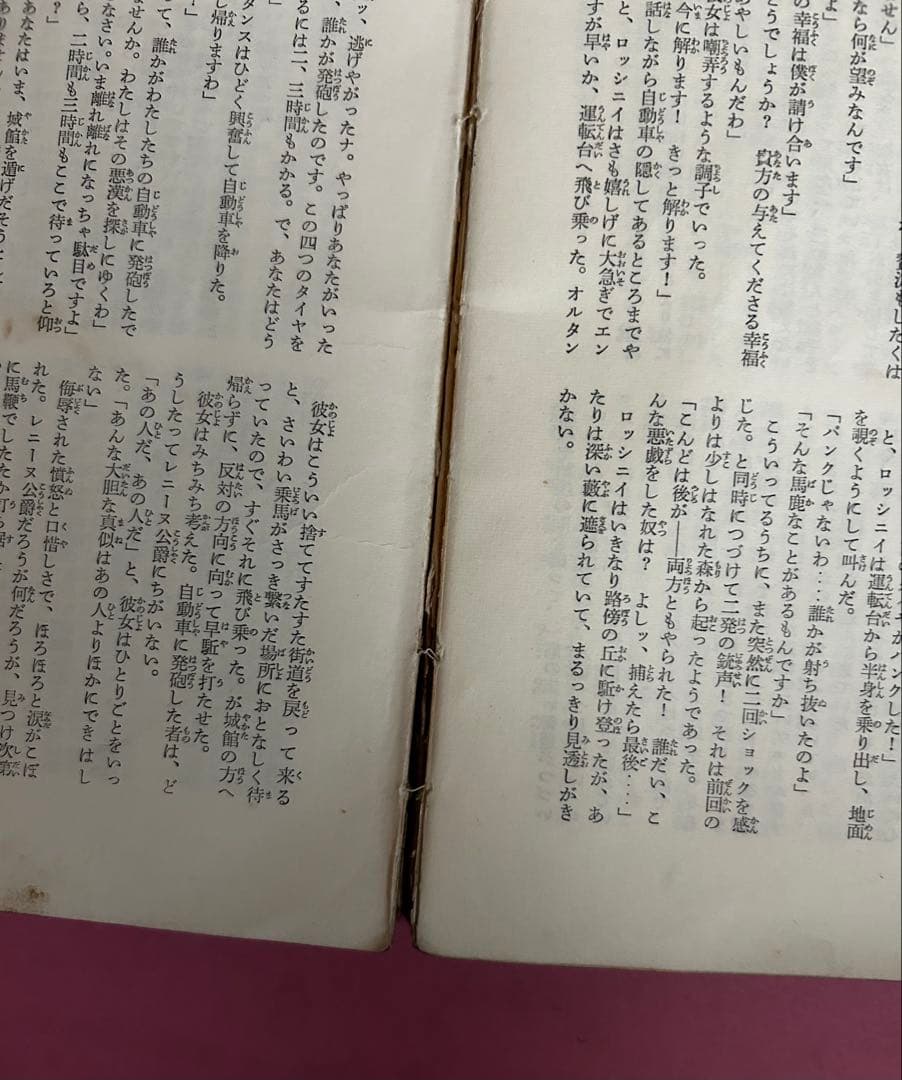 せん」
なら何が望みなんです」
よ」
の幸福は僕が請け合います」
どうでしょうか？　貴方の与えてくださる幸福
あやしいもんだわ」
彼女は嘲弄するような調子でいった。
今に解ります！　きっと解ります！」
話しながら自動車の隠してあるところまでや
と、ロッシニイはさも嬉しげに大急ぎでエン
すが早いか、運転台へ飛び乗った。オルタン
ンクした！」
と、ロッシニイは運転台から半身を乗り出し、地面
を覗くようにして叫んだ。
「パンクじゃないわ‥‥誰かが射ち抜いたのよ」
「そんな馬鹿なことがあるもんですか」
こういってるうちに、また突然に二回ショックを感
じた。と同時につづけて二発の銃声！　それは前回の
よりは少しはなれた森から起ったようであった。
「こんどは後が――両方ともやられた！　誰だい、こ
んな悪戯をした奴は？　よしッ、捕えたら最後‥‥」
ロッシニイはいきなり路傍の丘に駈け登ったが、あ
たりは深い藪に遮られていて、まるっきり見透しがき
かない。
ッ、逃げやがったナ。やっぱりあなたがいった
、誰かが発砲したのです。この四つのタイヤを
るには二、三時間もかかる。で、あなたはどう
」
帰りますわ」
タンスはひどく興奮して自動車を降りた。
して、誰かがわたしたちの自動車に発砲したで
ませんか。わたしはその悪漢を探しにゆくわ」
なさい。いま離れ離れになっちゃ駄目ですよ」
ら、二時間も三時間もここで待っていろと仰
？」
あなたはいま、城館を遁げだそうとし
彼女はこういい捨ててすたすた街道を戻って来る
と、さいわい乗馬がさっき繋いだ場所におとなしく待
っていたので、すぐそれに飛び乗った。が城館の方へ
帰らずに、反対の方向に向って早駈を打たせた。
彼女はみちみち考えた。自動車に発砲した者は、ど
うしたってレニーヌ公爵にちがいない。
「あの人だ、あの人だ」と、彼女はひとりごとをいっ
た。「あんな大胆な真似はあの人よりほかにできはし
ない」
侮辱された憤怒と口惜しさで、ほろほろと涙がこぼ
れた。レニーヌ公爵だろうが何だろうが、見つけ次第
に馬鞭でしたたか打ち